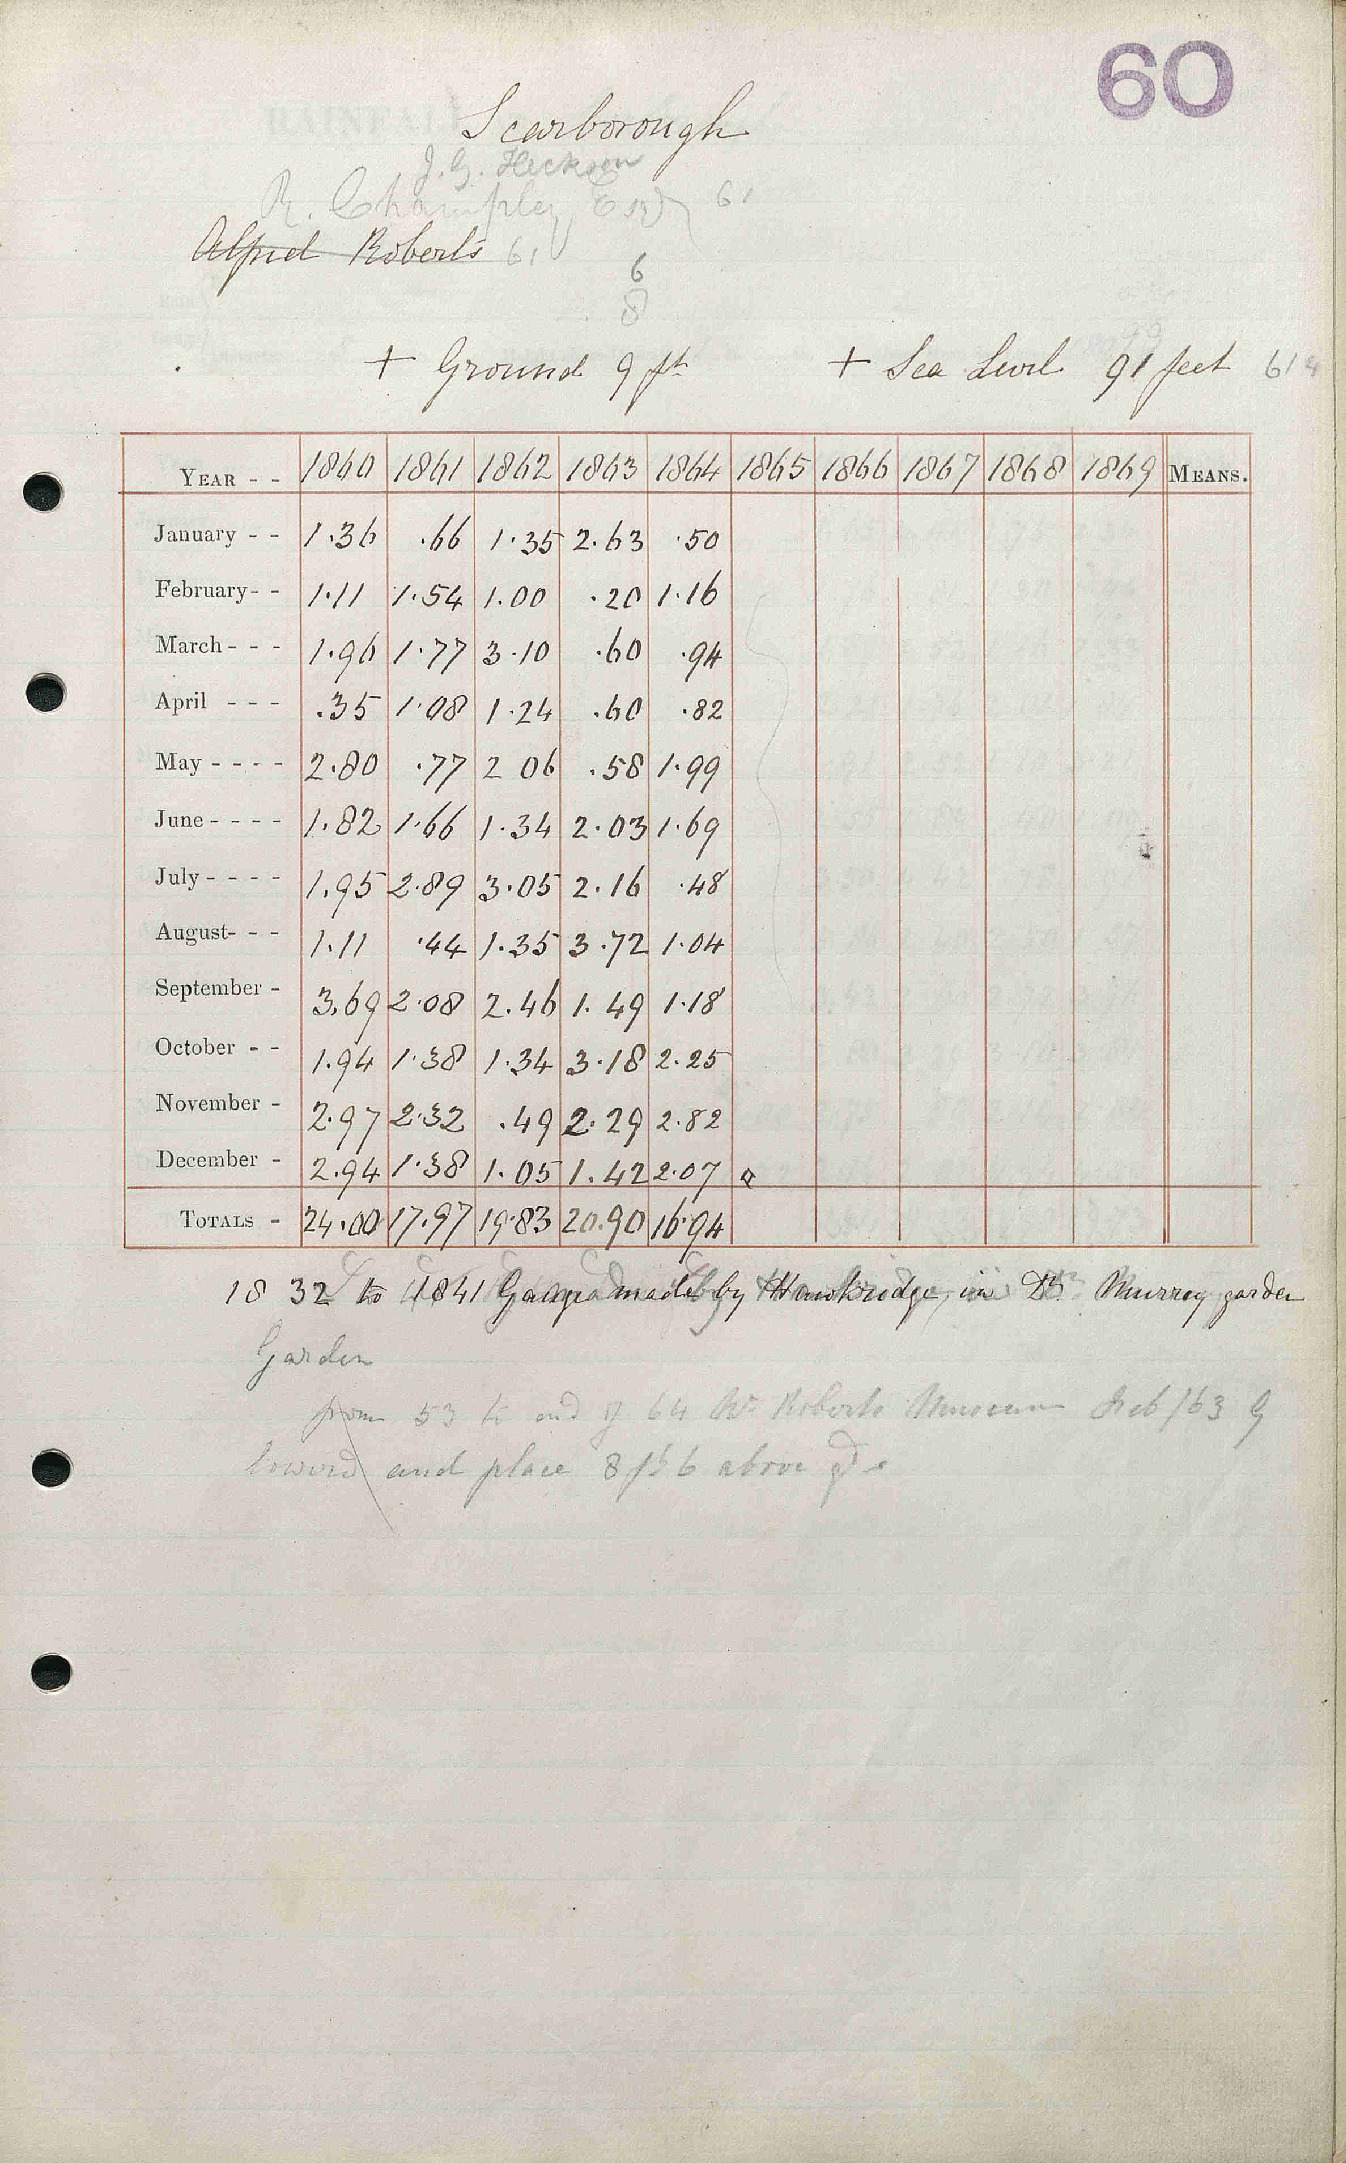 60
Scarborough
J. G. Hickson
R. Champley Esq 61
Alfred Roberts 61
6
8
+ Ground 9 ft + Sea Level 91 feet 61
YEAR - - 1860 1861 1862 1863 1864 1865 1866 1867 1868 1869 MEANS.
January - - 1.36 .66 1.35 2.63 .50
February - - 1.11 1.54 1.00 .20 1.16
March - - - 1.96 1.77 3.10 .60 .94
April - - - .35 1.08 1.24 .60 .82
May - - - - 2.80 .77 2 06 .58 1.99
June - - - - 1.82 1.66 1.34 2.03 1.69
July - - - - 1.95 2.89 3.05 2.16 .48
August - - - 1.11 .44 1.35 3.72 1.04
September - 3.69 2.08 2.46 1.49 1.18
October - - 1.94 1.38 1.34 3.18 2.25
November - 2.97 2.32 .49 2.29 2.82
December - 2.94 1.38 1.05 1.42 2.07 a
TOTALS - 24.00 17.97 19.83 20.90 16.94
1832 to 1841 Gauge made by Hawkridge, in Dr. Murray garden
Garden
from 53 to end of 64 Mr Roberts Museum Feb /63 G
lowered and place 8 ft 6 above gd